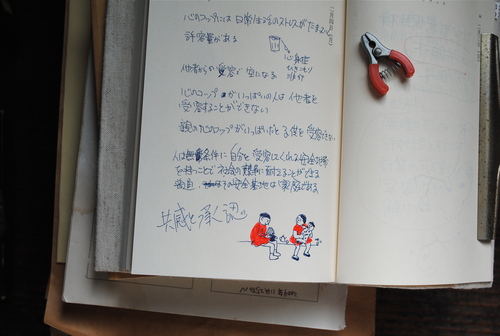 心のコップには日常生活のストレスがたまる
許容量がある
心身症
ひきこもり
他者からの受容で空になる
心のコップがいっぱいの人は他者を
受容することができない
親の心のコップがいっぱいだと子供を受容できない
人は無条件に自分を受容してくれる安全な場
を持つことで社会の競争に耐えることができる
普通、その安全基地は家庭である
共感と承認。